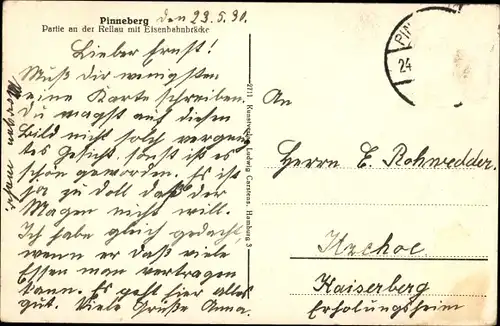 Pinneberg den 23.5.30.
Partie an der Rellau mit Eisenbahnbrücke
Lieber Ernst!
Muß Dir wenigstens
eine Karte schreiben.
Du magst auf diesen
Bild nicht solch
Gesicht. sonst ist es
schön geworden. Es ist
ja zu doll daß der
Magen nicht will.
Ich habe gleich gedacht,
wenn er daß viele
Essen man vertragen
kann. Es geht hier alles
gut. Viele Grüße Anna.
Morgen mehr
2711 Kunstverlag Ludwig Carstens, Hamburg 3
PIN
24
An
Herrn E. Rohwedder.
Itzehoe.
Kaiserberg
Erholungsheim